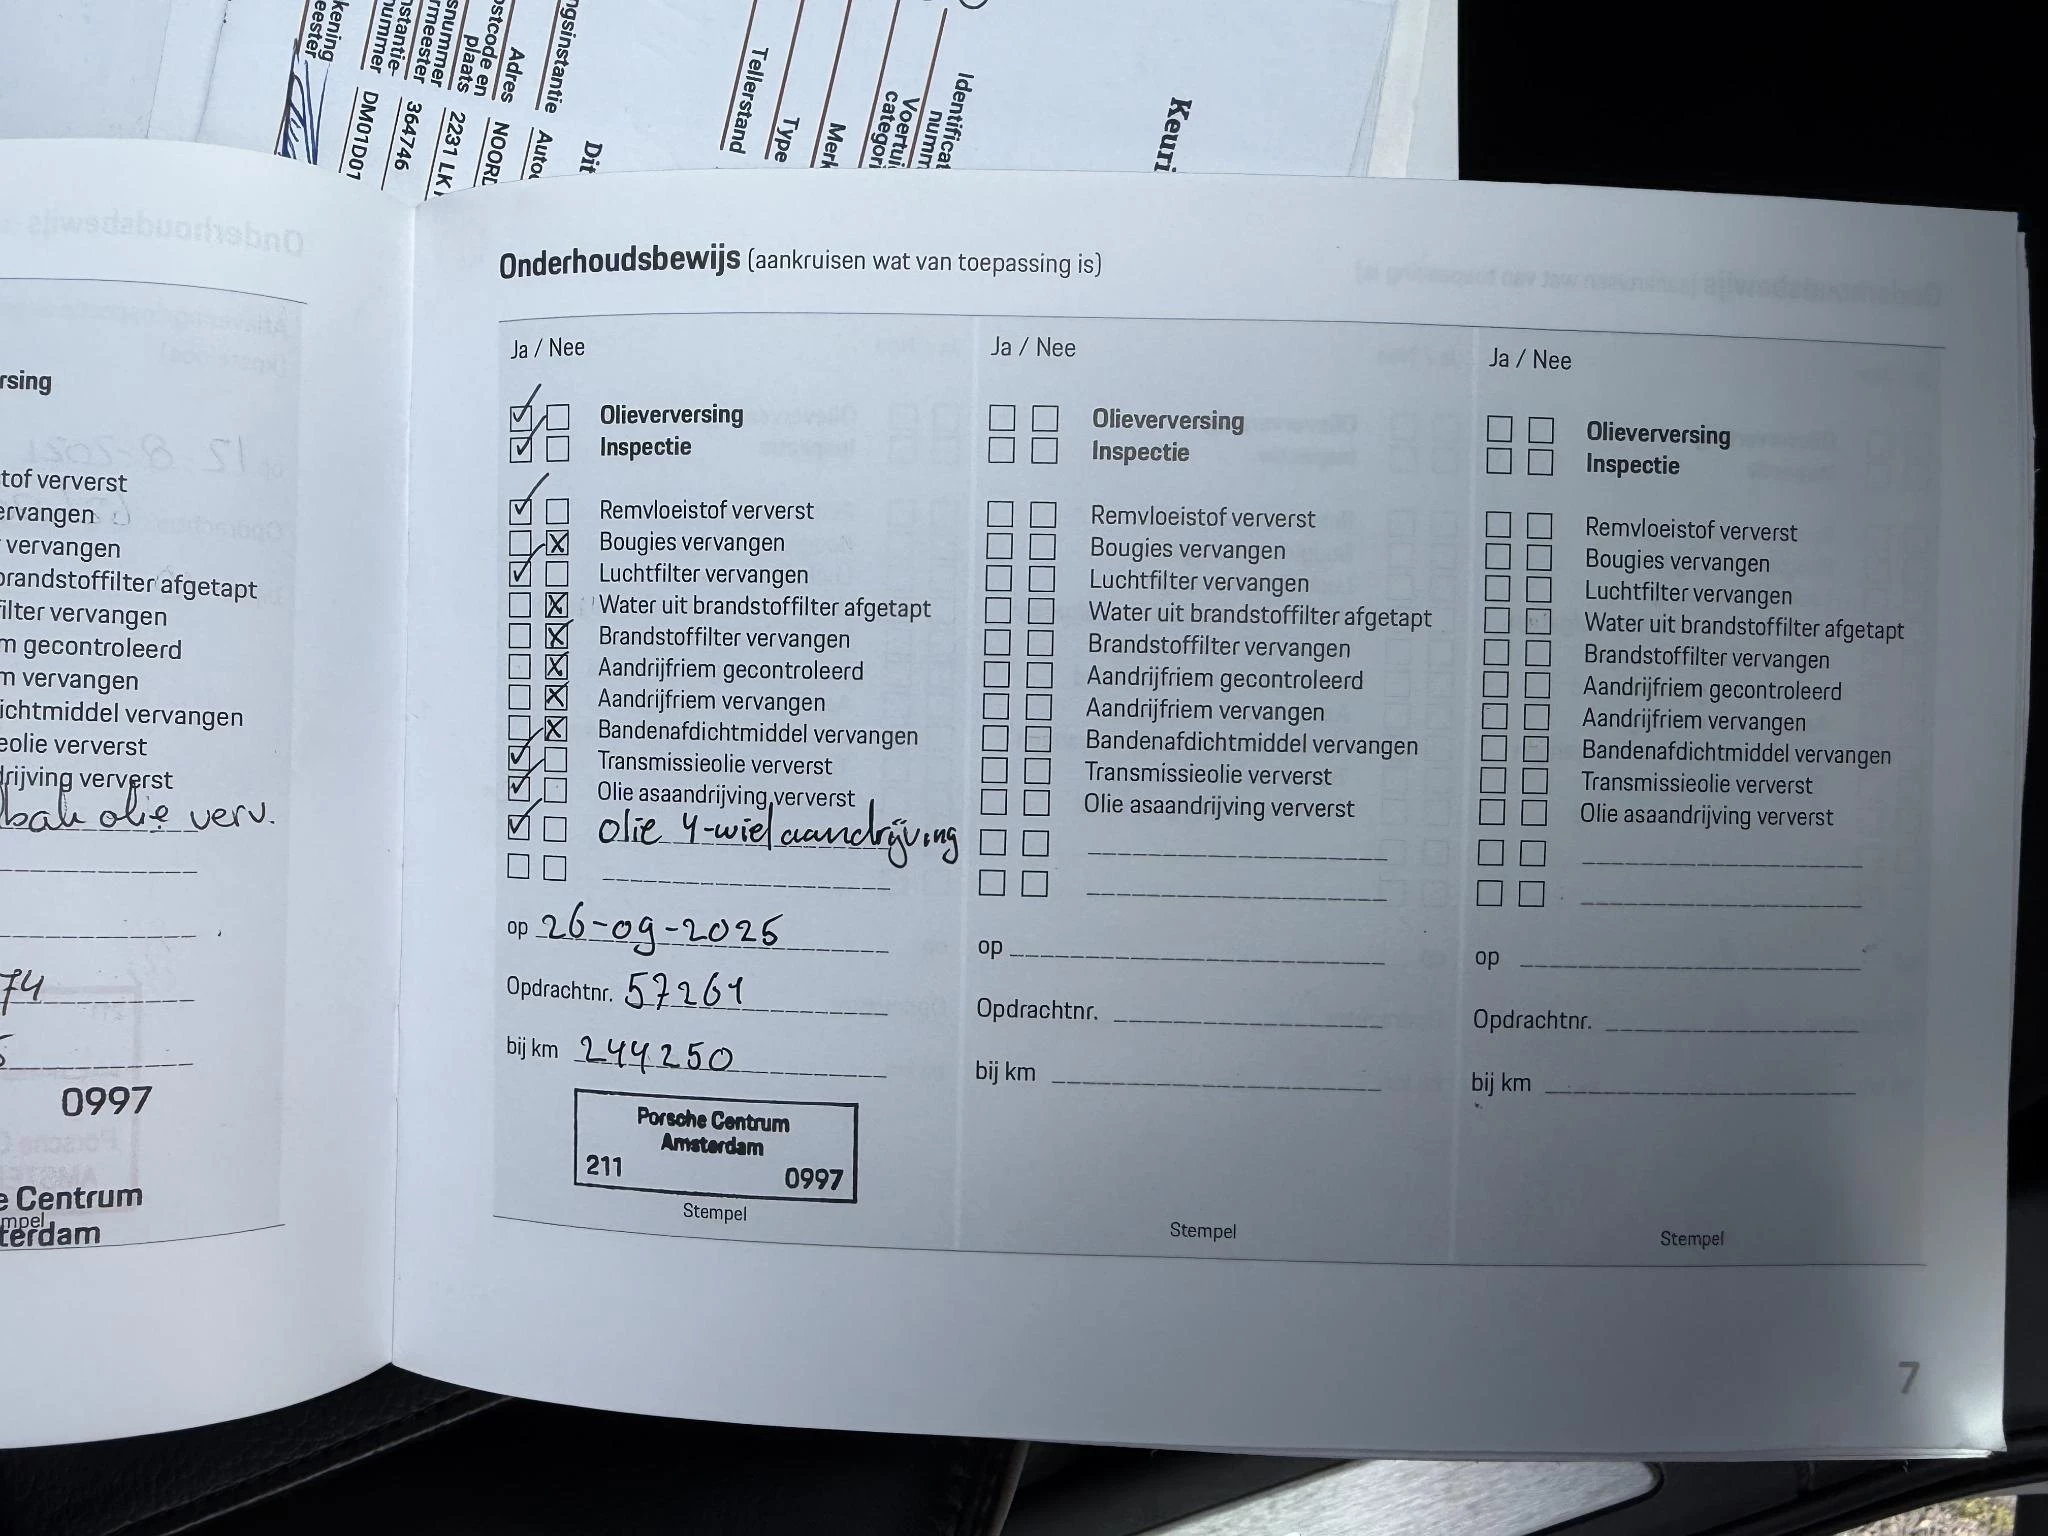 Keuri
Identificat
numm
Voertui
categori
Merk
Type
Tellerstand
Dit
ngsinstantie Autoc
Adres NOORD
stcode en
plaats 2231 LK
snummer
rmeester 364746
nstantie-
nummer DM01D01
kening
eester
rsing
tof ververst
ervangen
vervangen
brandstoffilter afgetapt
filter vervangen
m gecontroleerd
m vervangen
ichtmiddel vervangen
eolie ververst
drijving ververst
bak olie verv.
74
5
0997
e Centrum
mpel
terdam
Onderhoudsbewijs (aankruisen wat van toepassing is)
Ja / Nee
Olieverversing
Inspectie
Remvloeistof ververst
Bougies vervangen
Luchtfilter vervangen
Water uit brandstoffilter afgetapt
Brandstoffilter vervangen
Aandrijfriem gecontroleerd
Aandrijfriem vervangen
Bandenafdichtmiddel vervangen
Transmissieolie ververst
Olie asaandrijving ververst
olie 4-wielaandrijving
op 26-09-2025
Opdrachtnr. 57261
bij km 244250
Porsche Centrum
Amsterdam
211 0997
Stempel
Ja / Nee
Olieverversing
Inspectie
Remvloeistof ververst
Bougies vervangen
Luchtfilter vervangen
Water uit brandstoffilter afgetapt
Brandstoffilter vervangen
Aandrijfriem gecontroleerd
Aandrijfriem vervangen
Bandenafdichtmiddel vervangen
Transmissieolie ververst
Olie asaandrijving ververst
op
Opdrachtnr.
bij km
Stempel
Ja / Nee
Olieverversing
Inspectie
Remvloeistof ververst
Bougies vervangen
Luchtfilter vervangen
Water uit brandstoffilter afgetapt
Brandstoffilter vervangen
Aandrijfriem gecontroleerd
Aandrijfriem vervangen
Bandenafdichtmiddel vervangen
Transmissieolie ververst
Olie asaandrijving ververst
op
Opdrachtnr.
bij km
Stempel
7